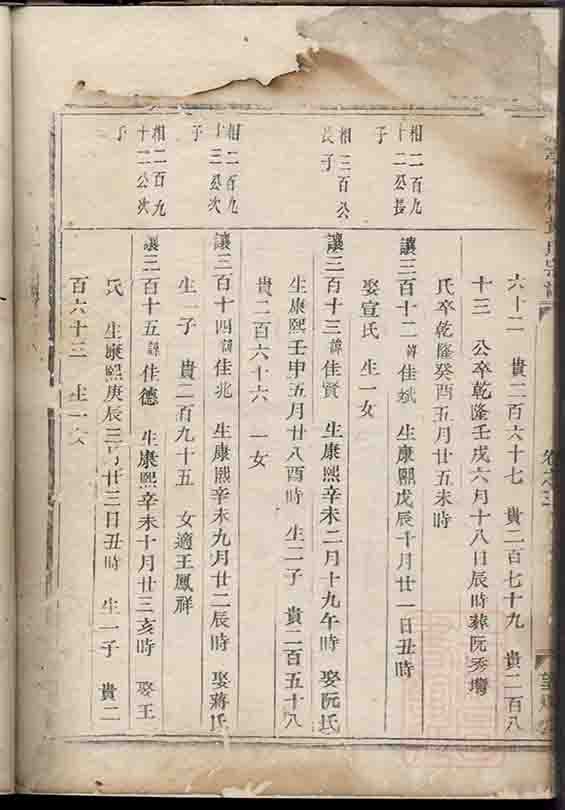 六十二 貴二百六十七 貴二百七十九 貴二百八
十三 公卒乾隆壬戌六月十八日辰時葬阮秀灣
氏卒乾隆癸酉五月廿五未時
相二百九
十二公長
子
讓三百十二諱佳斌 生康熙戊辰十月廿一日丑時
娶宣氏 生一女
相三百公
長子
讓三百十三諱佳賢 生康熙辛未二月十九午時 娶阮氏
生康熙壬申五月廿八酉時 生二子 貴二百五十八
貴二百六十六 一女
相二百九
十三公次
子
讓三百十四諱佳兆 生康熙辛未九月廿二辰時 娶蔣氏
生一子 貴二百九十五 女適王鳳祥
相二百九
十二公次
子
讓三百十五諱佳德 生康熙辛未十月廿三亥時 娶王
氏 生康熙庚辰三月廿三日丑時 生一子 貴二
百六十三 生一女